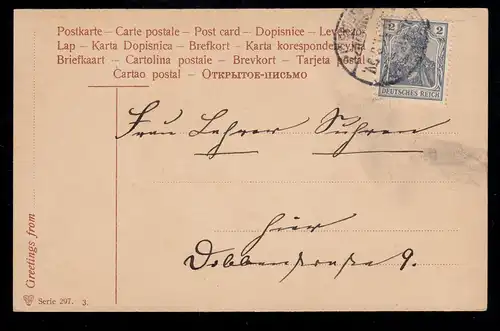 Postkarte – Carte postale – Post card – Dopisnice –
Lap – Karta Dopisnica – Brefkort – Karta
Briefkaart – Cartolina postale – Brevkort – Tarjeta postal
Cartao postal – ОТКРЫТОЕ-ПИСЬМО
2 2
DEUTSCHES REICH
Frau Lehrer Suhren
hier
Dobbenstraße 9.
Greetings from
Serie 297. 3.